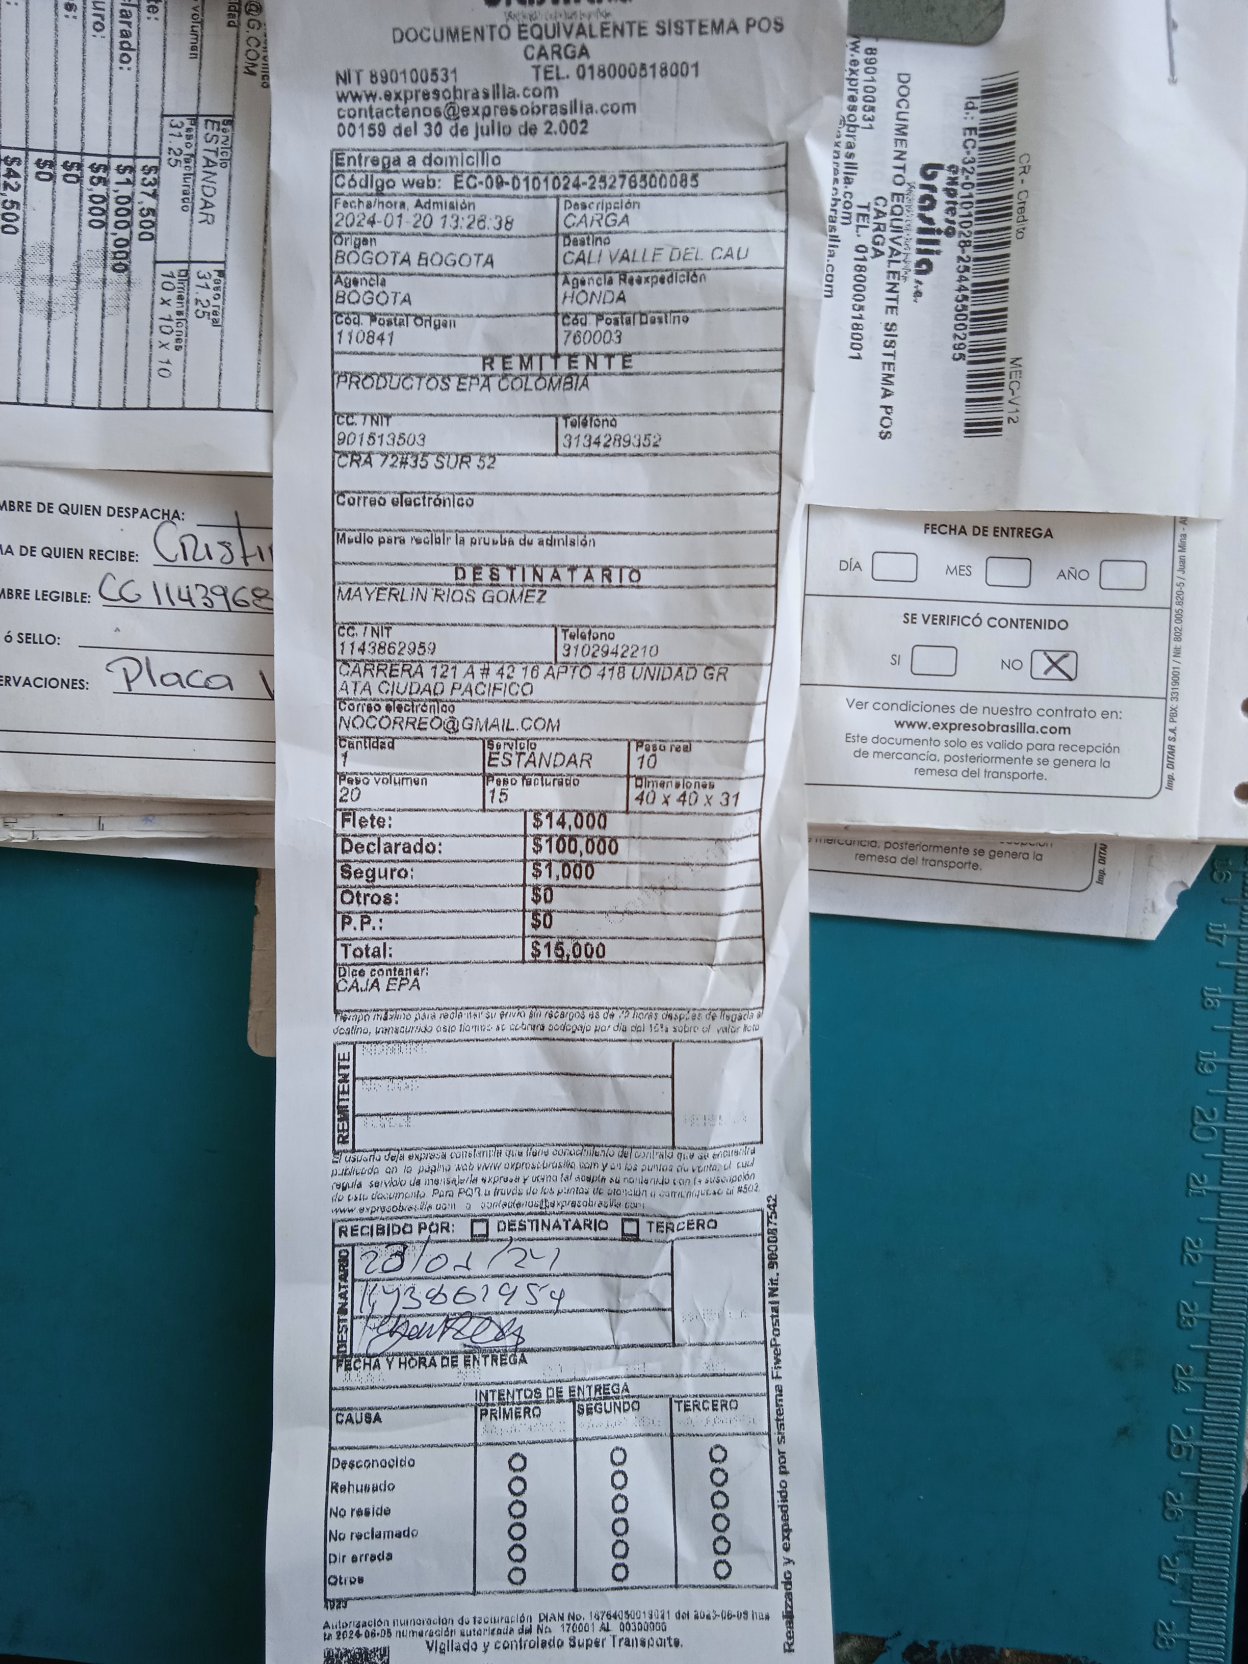 DOCUMENTO EQUIVALENTE SISTEMA POS
CARGA
NIT 890100531 TEL. 018000518001
www.expresobrasilia.com
contactenos@expresobrasilia.com
00159 del 30 de julio de 2.002
Entrega a domicilio
Código web: EC-09-0101024-25276500085
Fecha/hora, Admisión Descripción
2024-01-20 13:26:38 CARGA
Origen Destino
BOGOTA BOGOTA CALI VALLE DEL CAU
Agencia Agencia Reexpedición
BOGOTA HONDA
Cód. Postal Origen Cód. Postal Destino
110841 760003
REMITENTE
PRODUCTOS EPA COLOMBIA
CC. / NIT Teléfono
901513503 3134289352
CRA 72#35 SUR 52
Correo electrónico
Medio para recibir la prueba de admisión
DESTINATARIO
MAYERLIN RIOS GOMEZ
CC. / NIT Teléfono
1143862959 3102942210
CARRERA 121 A # 42 16 APTO 418 UNIDAD GR
ATA CIUDAD PACIFICO
Correo electrónico
NOCORREO@GMAIL.COM
Cantidad Servicio Peso real
1 ESTÁNDAR 10
Peso volumen Peso facturado Dimensiones
20 15 40 x 40 x 31
Flete: $14,000
Declarado: $100,000
Seguro: $1,000
Otros: $0
P.P.: $0
Total: $15,000
Dice contener:
CAJA EPA
Tiempo máximo para reclamar su envío sin recargos es de 72 horas después de llegada a
destino, transcurrido este tiempo se cobrará bodegaje por día del 15% sobre el valor flete
REMITENTE
El usuario deja expresa constancia que tiene conocimiento del contrato que se encuentra
publicado en la página web www.expresobrasilia.com y en los puntos de venta, el cual
regula servicio de mensajería expresa y
de este documento. Para PQR a través de los puntos de atención o comuníquese al #502
www.expresobrasilia.com o contactenos@expresobrasilia.com
RECIBIDO POR: DESTINATARIO TERCERO
DESTINATARIO
FECHA Y HORA DE ENTREGA
INTENTOS DE ENTREGA
CAUSA PRIMERO SEGUNDO TERCERO
Desconocido
Rehusado
No reside
No reclamado
Dir errada
Otros
4923
Autorización numeracion de facturación DIAN No.
Vigilado y controlado Super Transporte.
Realizado y expedido por sistema FivePostal Nit. 900087542
@G.COM
Servicio
ESTÁNDAR
Peso facturado Peso real
31.25 31.25
Dimensiones
10 x 10 x 10
$37,500
$1,000,000
$5,000
$0
$0
$42,500
MBRE DE QUIEN DESPACHA:
A DE QUIEN RECIBE: Cristi
MBRE LEGIBLE: CC 1143968
ó SELLO:
ERVACIONES: Placa
CR - Credito MEC-V12
Id.: EC-32-0101028-25445500295
expreso
brasilia s.a.
DOCUMENTO EQUIVALENTE SISTEMA POS
CARGA
890100531 TEL. 018000518001
w.expresobrasilia.com
FECHA DE ENTREGA
DÍA MES AÑO
SE VERIFICÓ CONTENIDO
SI NO X
Ver condiciones de nuestro contrato en:
www.expresobrasilia.com
Este documento solo es valido para recepción
de mercancía, posteriormente se genera la
remesa del transporte.
Imp. DITAR S.A. PBX: 3319001 / Nit: 802.005.820-5 / Juan Mina - A
mercancía, posteriormente se genera la
remesa del transporte.
Imp. DITAR
17
18
19
20
21
22
23
24
25
26
27
28